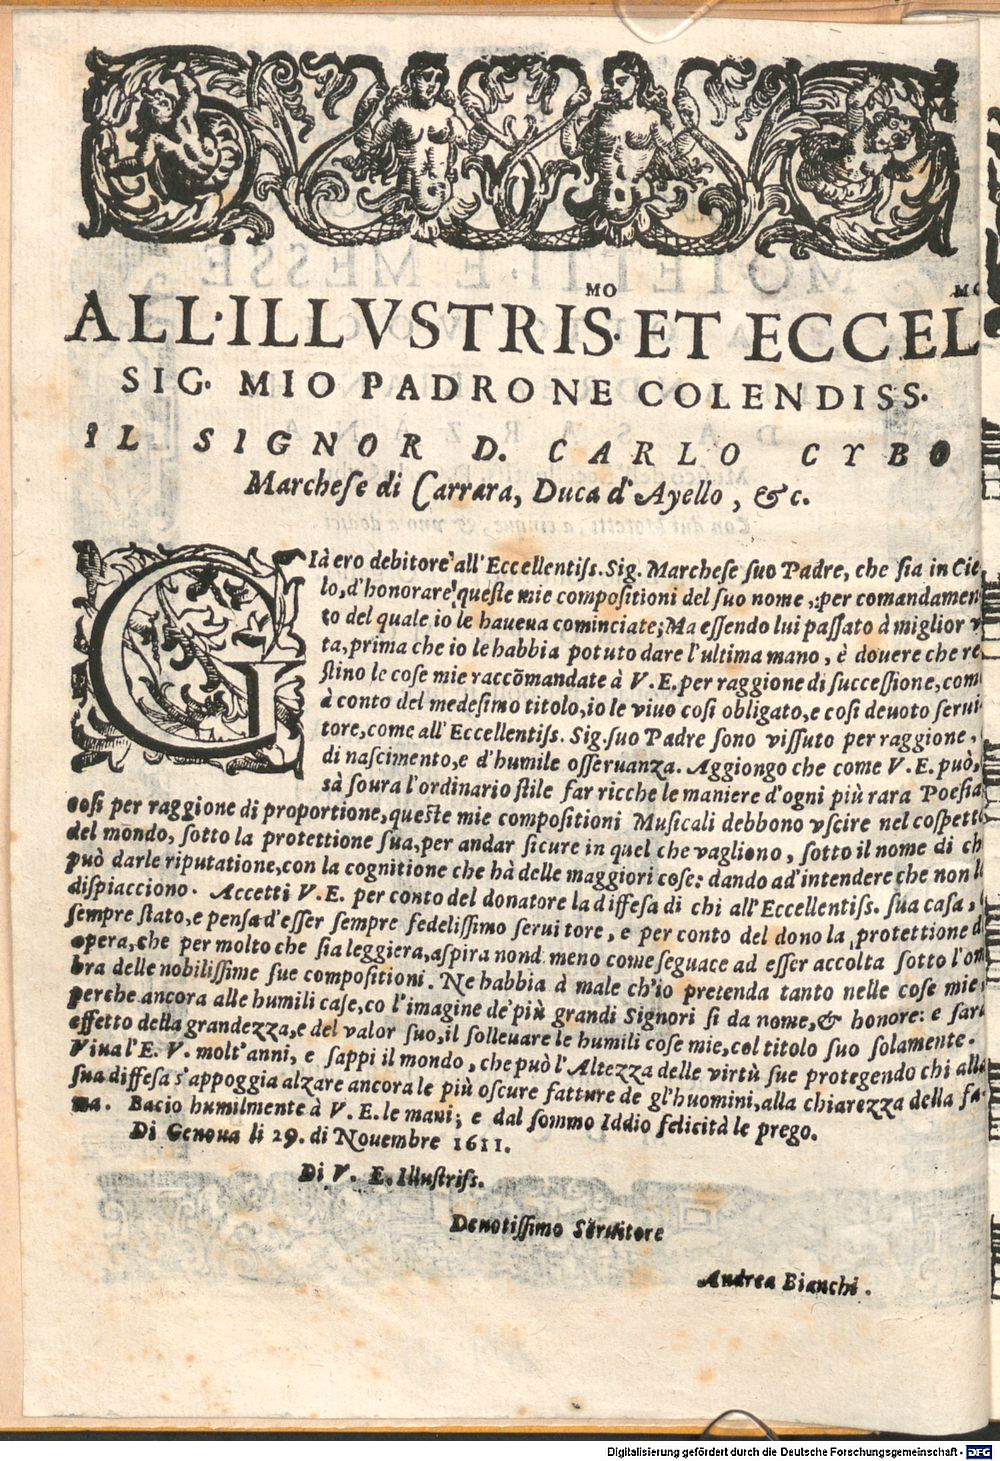 ALL·ILLVSTRIS.MO ET ECCEL
SIG. MIO PADRONE COLENDISS.
IL SIGNOR D. CARLO CYBO
Marchese di Carrara, Duca d'Ayello, &c.
GIà ero debitore all'Eccellentiſs. Sig. Marchese ſuo Padre, che ſia in Cie
lo, d'honorare queſte mie compoſitioni del ſuo nome, per comandamen
to del quale io le haueua cominciate; Ma eſſendo lui paſſato à miglior v
ta, prima che io le habbia potuto dare l'ultima mano, è douere che re
ſtino le coſe mie raccõmandate à V.E. per raggione di ſucceſſione, com
à conto del medeſimo titolo, io le viuo coſi obligato, e coſi deuoto ſerui
tore, come all'Eccellentiſs. Sig. ſuo Padre ſono viſſuto per raggione,
di naſcimento, e d'humile oſſeruanza. Aggiongo che come V.E. può,
sà ſoura l'ordinario ſtile far ricche le maniere d'ogni più rara Poeſia
coſi per raggione di proportione, queſte mie compoſitioni Muſicali debbono vſcire nel coſpett
del mondo, ſotto la protettione ſua, per andar ſicure in quel che vagliono, ſotto il nome di ch
può darle riputatione, con la cognitione che hà delle maggiori coſe: dando ad'intendere che non l
diſpiacciono. Accetti V.E. per conto del donatore la diffeſa di chi all'Eccellentiſs. ſua caſa,
ſempre ſtato, e penſa d'eſſer ſempre fedeliſſimo ſeruitore, e per conto del dono la protettione d
opera, che per molto che ſia leggiera, aſpira nond. meno come ſeguace ad eſſer accolta ſotto l'om
bra delle nobiliſſime ſue compoſitioni. Ne habbia à male ch'io pretenda tanto nelle coſe mie,
perche ancora alle humili caſe, co l'imagine de' più grandi Signori ſi da nome, & honore: e ſar
effetto della grandezza, e del valor ſuo, il ſolleuare le humili coſe mie, col titolo ſuo ſolamente.
Viua l'E. V. molt'anni, e ſappi il mondo, che può l'Altezza delle virtù ſue protegendo chi alla
ſua diffeſa s'appoggia alzare ancora le più oſcure fatture de gl'huomini, alla chiarezza della fa-
ma. Bacio humilmente à V.E. le mani; e dal ſommo Iddio felicità le prego.
Di Genoua li 29. di Nouembre 1611.
Di V. E. Illuſtriſs.
Deuotiſſimo Seruitore
Andrea Bianchi.
Digitalisierung gefördert durch die Deutsche Forschungsgemeinschaft - DFG